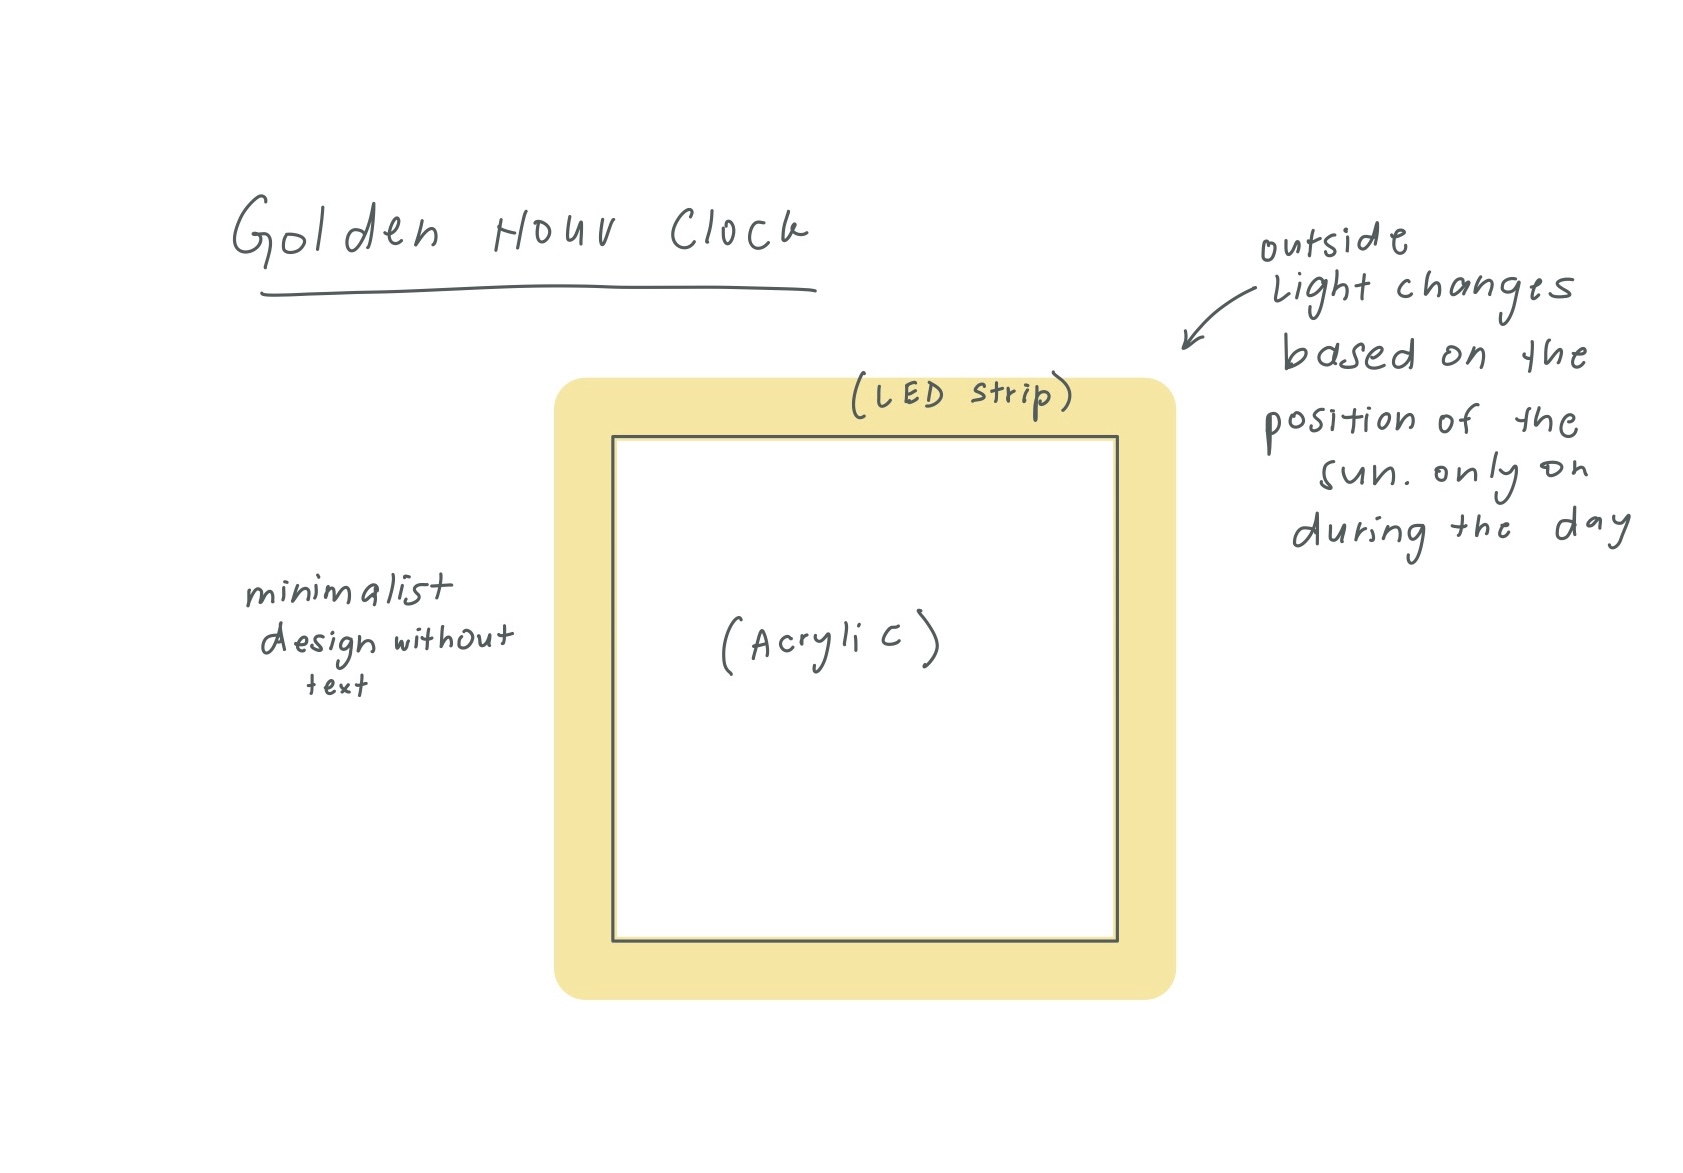 Golden Hour Clock
outside
Light changes
based on the
position of the
sun. only on
during the day
(LED strip)
minimalist
design without
text
(Acrylic)